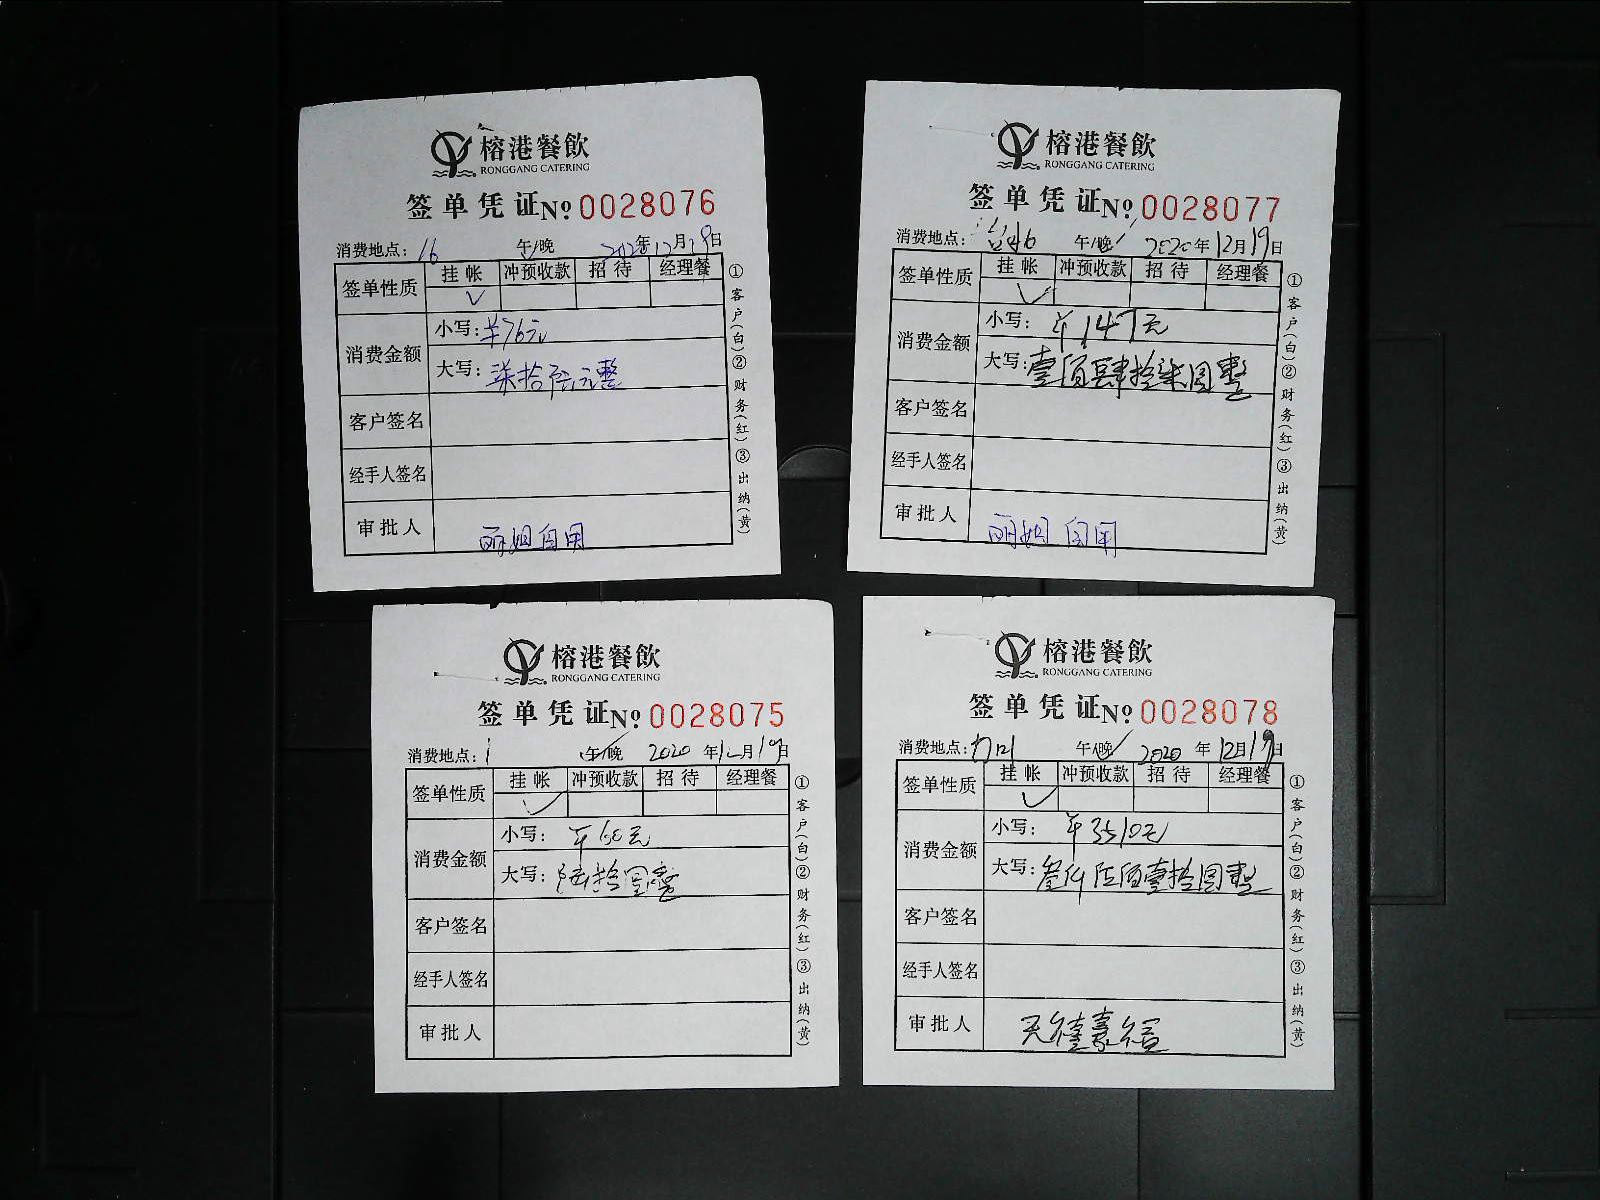 榕港餐飲
RONGGANG CATERING
签单凭证 No 0028076
消费地点：16 午/晚 2020年12月19日
签单性质 挂帐 冲预收款 招待 经理餐
✓
消费金额
小写：￥76元
大写：柒拾陆元整
客户签名
经手人签名
审批人 丽姐自用
①客户(白)②财务(红)③出纳(黄)
榕港餐飲
RONGGANG CATERING
签单凭证 No 0028077
消费地点： 午/晚 2020年12月19日
签单性质 挂帐 冲预收款 招待 经理餐
✓
消费金额
小写：￥147元
大写：壹佰肆拾柒圆整
客户签名
经手人签名
审批人 丽姐自用
①客户(白)②财务(红)③出纳(黄)
榕港餐飲
RONGGANG CATERING
签单凭证 No 0028075
消费地点：1 午/晚 2020年12月19日
签单性质 挂帐 冲预收款 招待 经理餐
✓
消费金额
小写：￥60元
大写：陆拾圆整
客户签名
经手人签名
审批人
①客户(白)②财务(红)③出纳(黄)
榕港餐飲
RONGGANG CATERING
签单凭证 No 0028078
消费地点： 午/晚 2020年12月19日
签单性质 挂帐 冲预收款 招待 经理餐
✓
消费金额
小写：￥3510元
大写：叁仟伍佰壹拾圆整
客户签名
经手人签名
审批人
①客户(白)②财务(红)③出纳(黄)